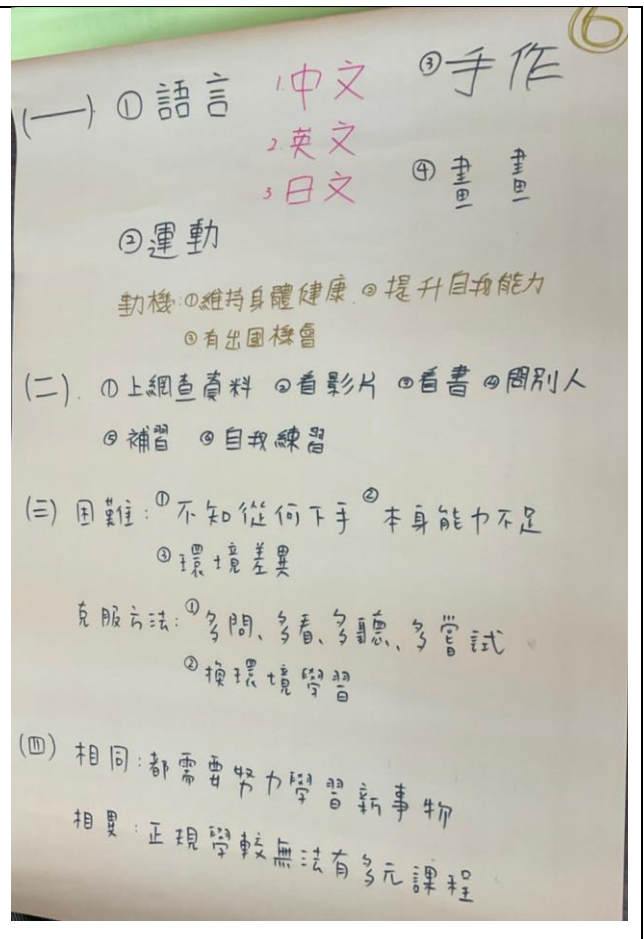 6
(一) ①語言 1.中文 ③手作
2.英文
3.日文 ④畫畫
②運動
動機:①維持身體健康.②提升自我能力
③有出國機會
(二). ①上網查資料 ②看影片 ③看書 ④問別人
⑤補習 ⑥自我練習
(三) 困難:①不知從何下手 ②本身能力不足
③環境差異
克服方法:①多問、多看、多聽、多嘗試
②換環境學習
(四) 相同:都需要努力學習新事物
相異:正規學較無法有多元課程